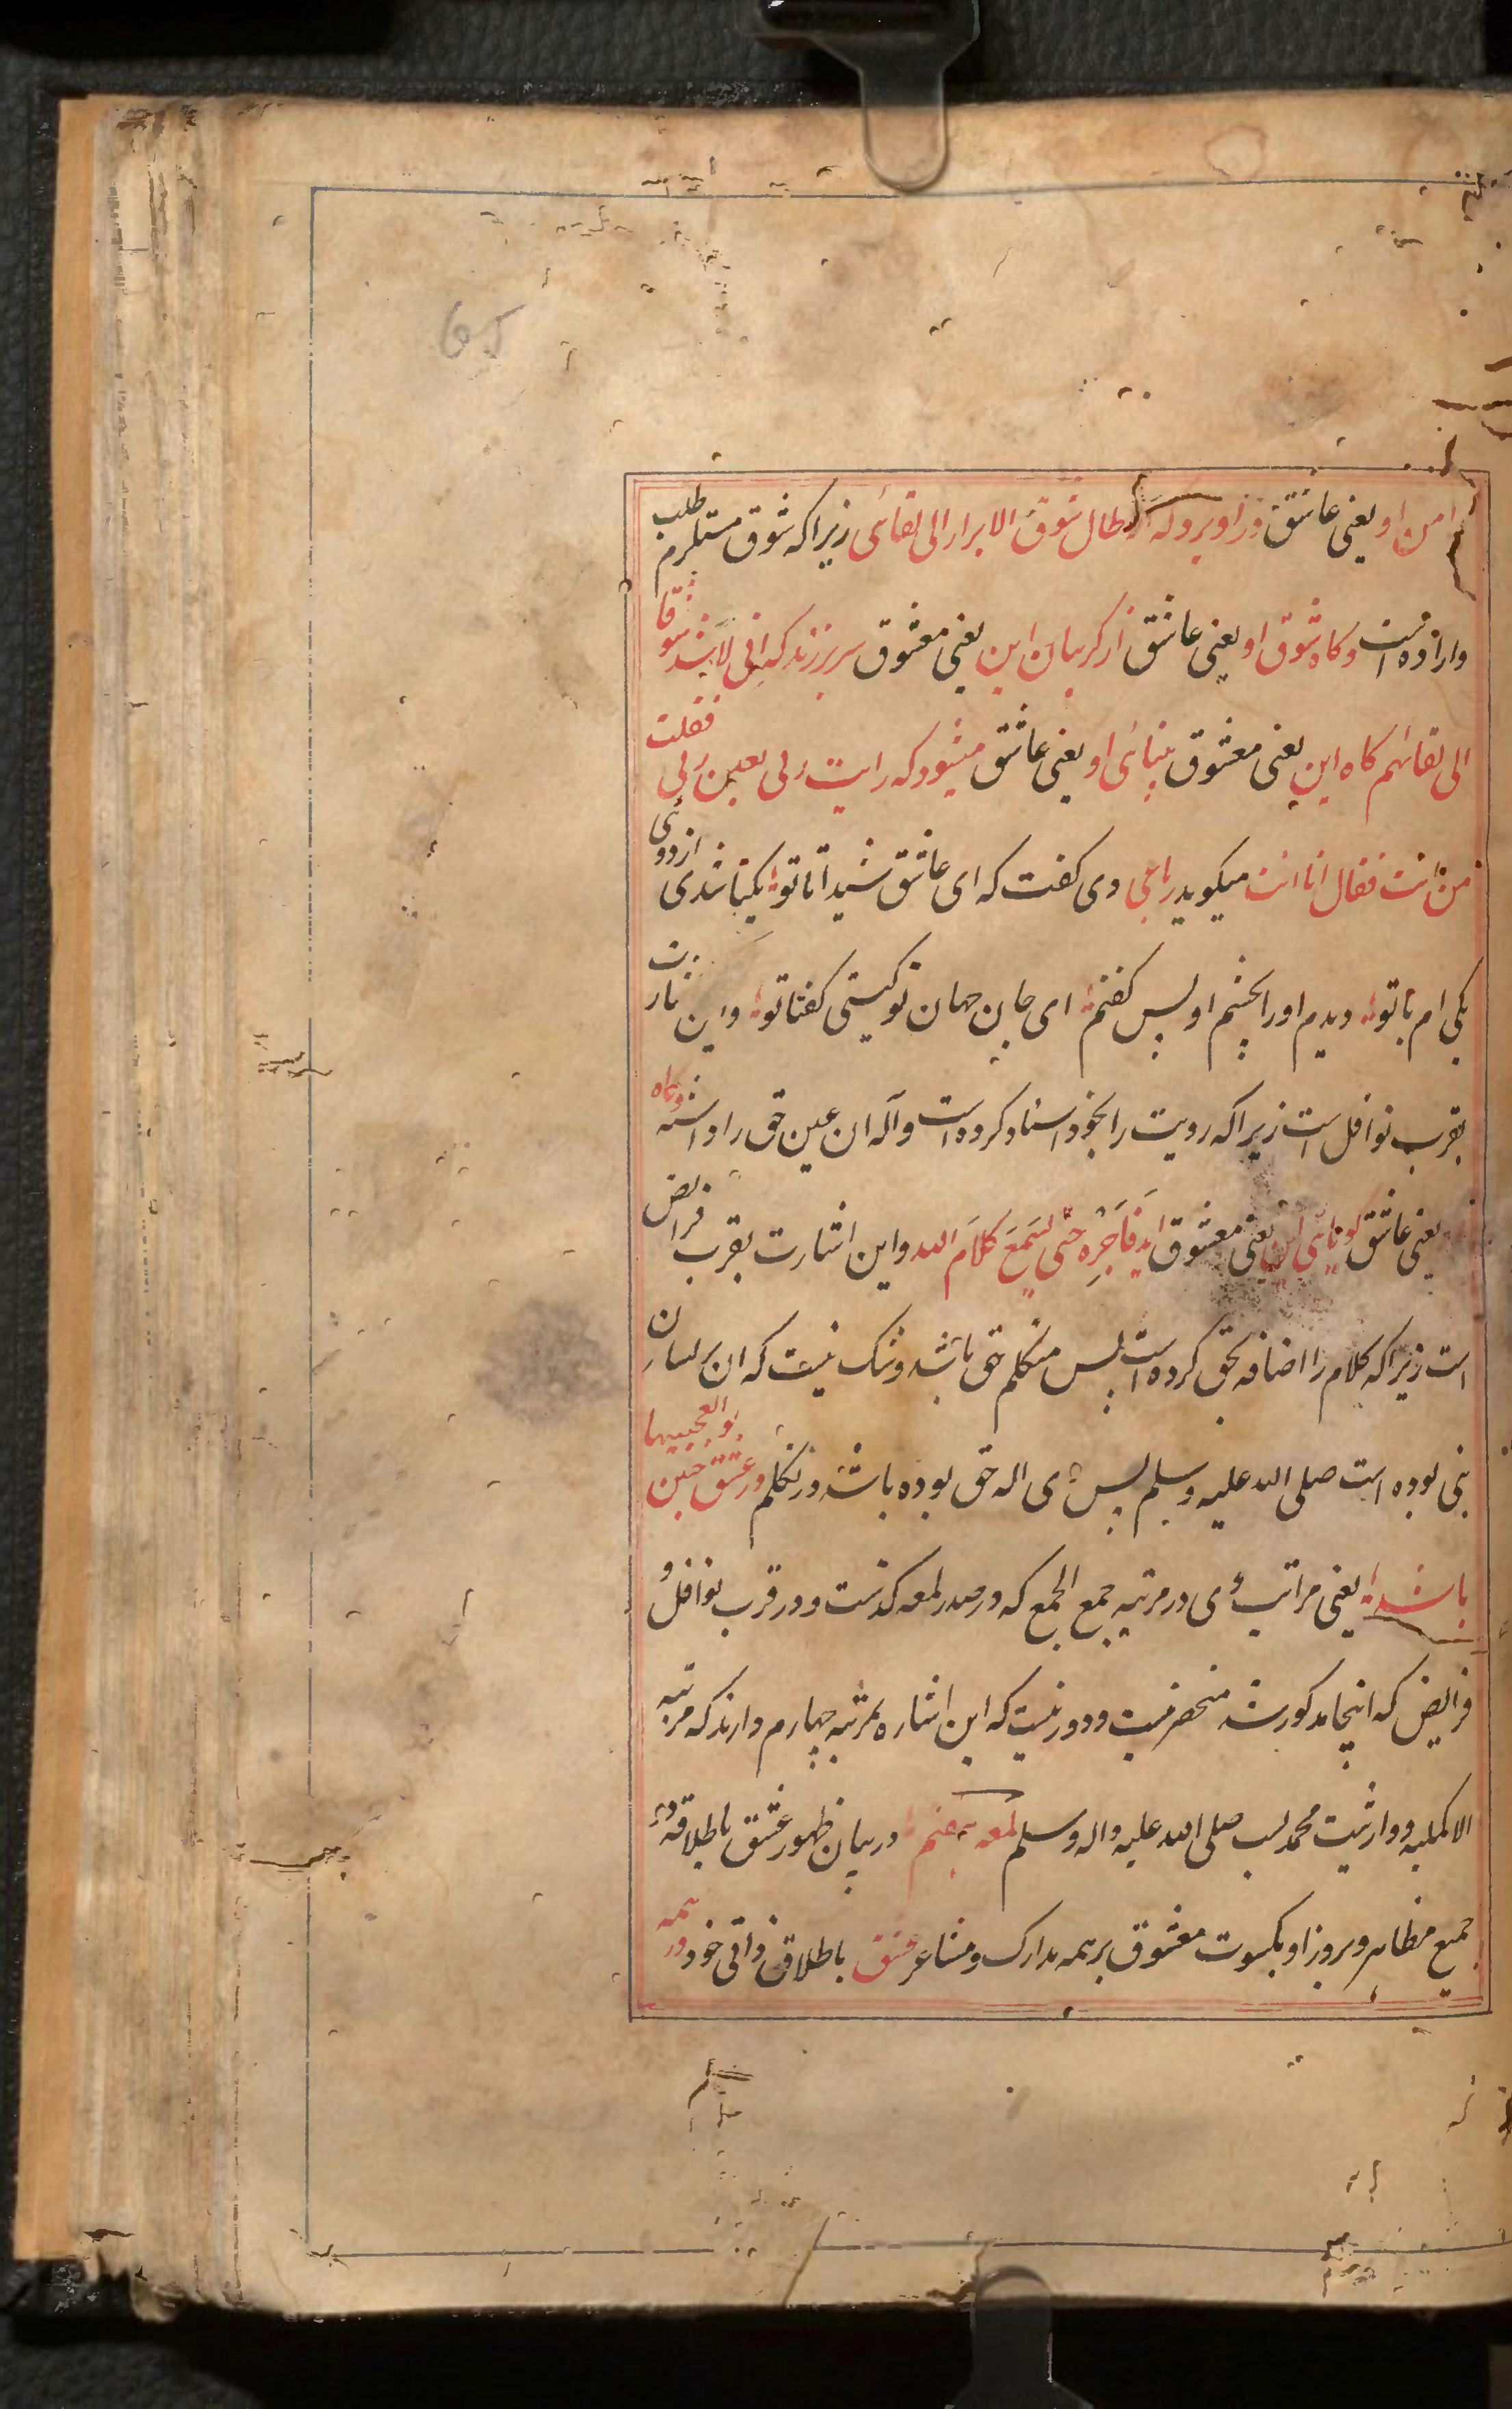 65
امن او یعنی عاشق در او برد که الاطال شوق الابرار الی لقائی زیرا که شوق مستلزم طلب
و اراده است و کاه شوق او یعنی عاشق از کریبان این یعنی معشوق سر برزند که انی لاشد شوقا
الی لقائهم کاه این یعنی معشوق بینائی او یعنی عاشق میشود که رایت ربی بعین ربی فقلت
من انت فقال انا انت میکوید رباعی دی کفت که ای عاشق شیدا تا تو یکتا شدی از دوئی
یکی ام با تو دیدم او را بچشم او پس کفتم ای جان جهان تو کیستی کفتا تو و این
بقرب نوافل است زیرا که رویت را بخود اسناد کرده است و آله ان عین حق را داشته و کاه
یعنی عاشق کویائی این یعنی معشوق اید فاجره حتی یسمع کلام الله و این اشارت بقرب فرایض
است زیرا که کلام را اضافه بحق کرده است پس متکلم حق باشد و شک نیست که ان بر لسان
نبی بوده است صلی الله علیه و سلم پس وی اله حق بوده باشد در تکلم در عشق چنین بوالعجبیها
باشد یعنی مراتب وی در مرتبه جمع الجمع که در صدر لمعه کذشت و در قرب نوافل و
فرایض که اینجا مذکور شد منحصر نیست و دور نیست که این اشاره بمرتبه چهارم دارند که مرتبه
الاکملیه و وارثیت محمدیست صلی الله علیه و اله و سلم لمعه در بیان ظهور عشق باطلاقه در
جمیع مظاهر و بروز او بکسوت معشوق بر همه مدارک و مشاعر عشق باطلاق ذاتی خود در همه